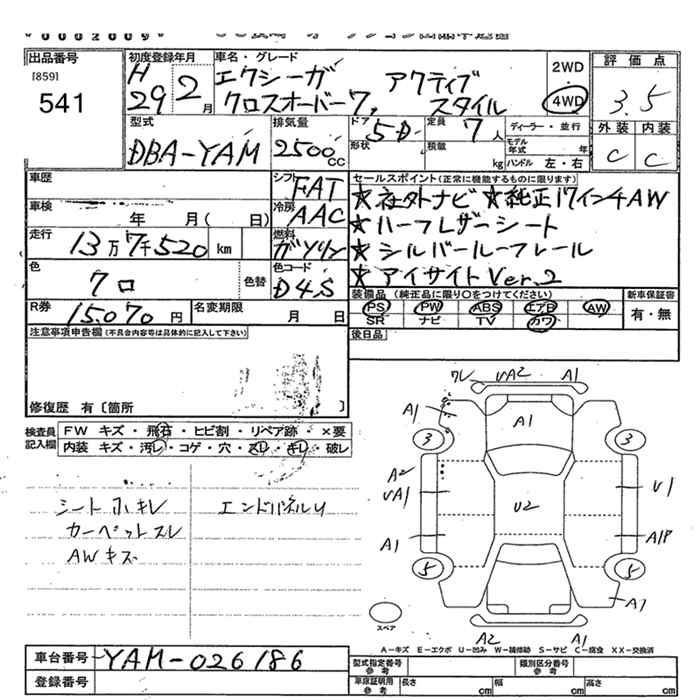 *0002009*
出品番号
[859]
541
初度登録年月
H 29 2月
車名・グレード
エクシーガ アクティブ
クロスオーバー7, スタイル
2WD
4WD
評価点
3.5
外装 内装
C C
型式
DBA-YAM
排気量
2500cc
ドア 5D
形状
定員 7人
積載 kg
ディーラー・並行
モデル年式 年
ハンドル 左・右
車歴
シフト FAT
車検 年 月( 日)
冷房 AAC
走行 13万7千520 km
燃料 ガソリン
色 クロ
色替
色コード D4S
R券 15,070円
名変期限 月 日
セールスポイント(正常に機能するものに限ります)
★社外ナビ ★純正17インチAW
★ハーフレザーシート
★シルバールーフレール
★アイサイトVer.2
装備品 (純正品に限り○をつけてください)
PS PW ABS エアB AW
SR ナビ TV カワ
新車保証書
有・無
後日品
注意事項申告欄(不具合内容等は具体的に記入して下さい)
修復歴 有〔箇所 〕
検査員記入欄
FW キズ・飛石・ヒビ割・リペア跡・×要
内装 キズ・汚レ・コゲ・穴・スレ・キレ・破レ
シート小キレ
カーペットスレ
AWキズ
エンドパネルU
ワレ UA2 A1
A1
A1
3
3
A2
UA1
U2
U1
A1
A1P
5
5
A1
スペア
A2
A1
A-キズ E-エクボ U-凹み W-補修跡 S-サビ C-腐食 XX-交換済
車台番号 YAM-026186
登録番号
型式指定番号 参考
類別区分番号 参考
車庫証明用 参考
長さ cm
幅 cm
高さ cm